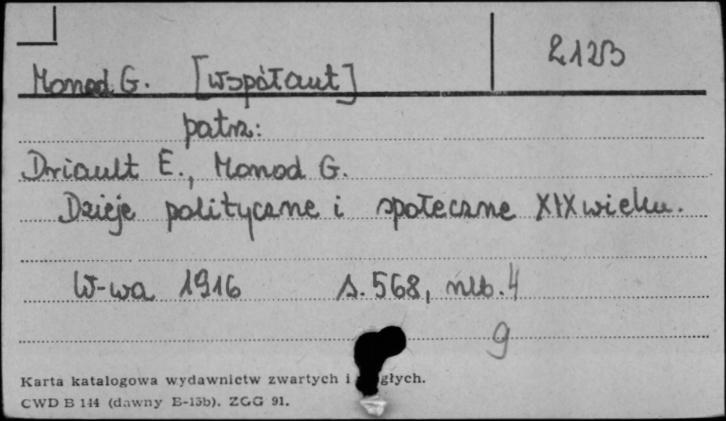 2123
Monod G. [współaut]
patrz:
Driault E., Monod G.
Dzieje polityczne i społeczne XIX wieku.
W-wa 1916 s. 568, nlb. 4
9
Karta katalogowa wydawnictw zwartych i głych.
CWD B 144 (dawny B-13b). ZGG 91.